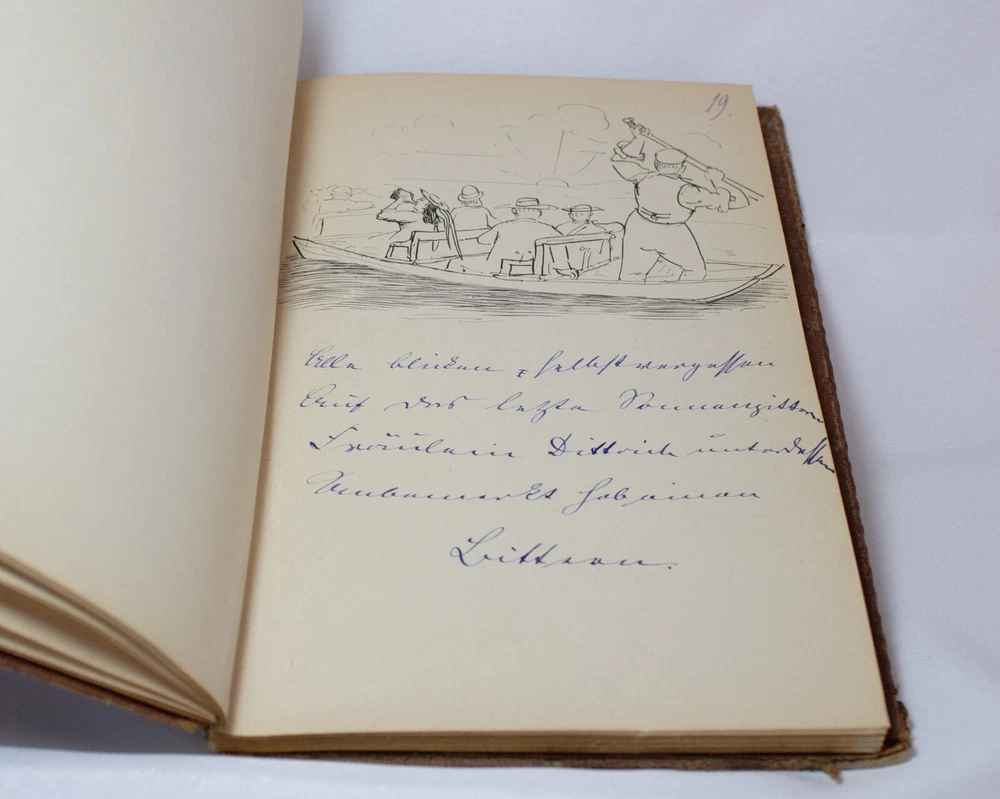 19.
Alle blicken selbstvergessen
Auf das letzte Sonnenzittern
Fräulein Dittrich unterdessen
Unbemerkt hebt einen
Bittern.